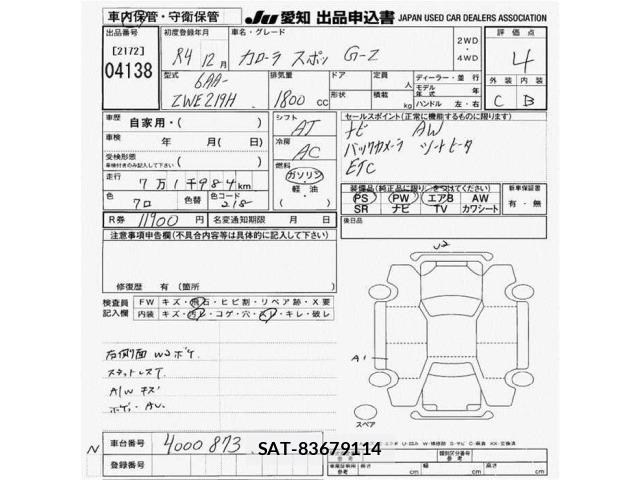 車内保管・守衛保管
JU 愛知 出品申込書 JAPAN USED CAR DEALERS ASSOCIATION
出品番号
[2172]
04138
初度登録年月
R4 12月
車名・グレード
カローラ スポーツ G-Z
2WD
4WD
評価点
4
型式
6AA-
ZWE219H
排気量
1800 cc
ドア
形状
定員
人
積載
kg
ディーラー・並行
モデル年式 年
ハンドル 左・右
外装 内装
C B
車歴
自家用・( )
車検
年 月(日)
受検形態
走行
7万1千984km
色
7ロ
色替
色コード
218
シフト
AT
冷房
AC
燃料
ガソリン
軽油
( )
セールスポイント(正常に機能するものに限ります)
ナビ AW
バックカメラ シートヒータ
ETC
装備品(純正品に限り○をつけてください)
PS PW エアB AW
SR ナビ TV カワシート
新車保証書
有・無
R券 11900円
名変通知期限 月 日
後日品
注意事項申告欄(不具合内容等は具体的に記入して下さい)
修復歴 有(箇所 )
検査員記入欄
FW キズ・飛石・ヒビ割・リペア跡・X要
内装 キズ・汚レ・コゲ・穴・スレ・キレ・破レ
U2
A1
スペア
右側面 W3ボケ.
スタットレスT
A/W キズ
N
車台番号
4000873
登録番号
SAT-83679114
長さ cm
幅 cm
高さ cm